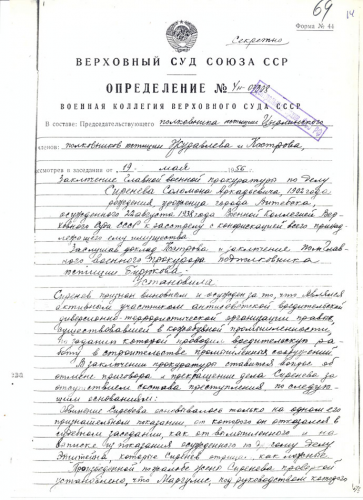 69
14
Форма № 44
Секретно
ВЕРХОВНЫЙ СУД СОЮЗА ССР
ОПРЕДЕЛЕНИЕ № 4н-
ВОЕННАЯ КОЛЛЕГИЯ ВЕРХОВНОГО СУДА СССР
В составе: Председательствующего полковника юстиции
членов: полковников юстиции Журавлева и Кострова,
рассмотрела в заседании от 19 мая 1956 г.
Заключение Главной военной прокуратуры по делу
Сиренева Соломона Аркадьевича 1902 года
рождения уроженца города Витебска,
осужденного 22 августа 1938 года Военной Коллегией Вер-
ховного Суда СССР к расстрелу с конфискацией всего принад-
лежащего ему имущества
Заслушав доклад т. Кострова и заключение пом. Глав-
ного Военного Прокурора подполковника
юстиции
Установила
Сиренев признан виновным и осужден за то, что являлся
активным участником антисоветской вредительской
диверсионно-террористической организации правых,
существовавшей в промышленности,
по заданию которой проводил вредительскую ра-
боту в строительстве промышленных сооружений.
В заключении прокуратуры ставится вопрос об
отмене приговора и прекращении дела Сиренева за
отсутствием состава преступления по следую-
щим основаниям:
Обвинение Сиренева основывалось только на одном его
признательном показании от которого он отказался в
судебном заседании, как от вымышленного и на
выписке из показания осужденного по др. делу
Эпштейна, которые Сиренев отрицал как ложные.
Произведенной по жалобе жены Сиренева проверкой
установлено, что Маргулис, под руководством которого